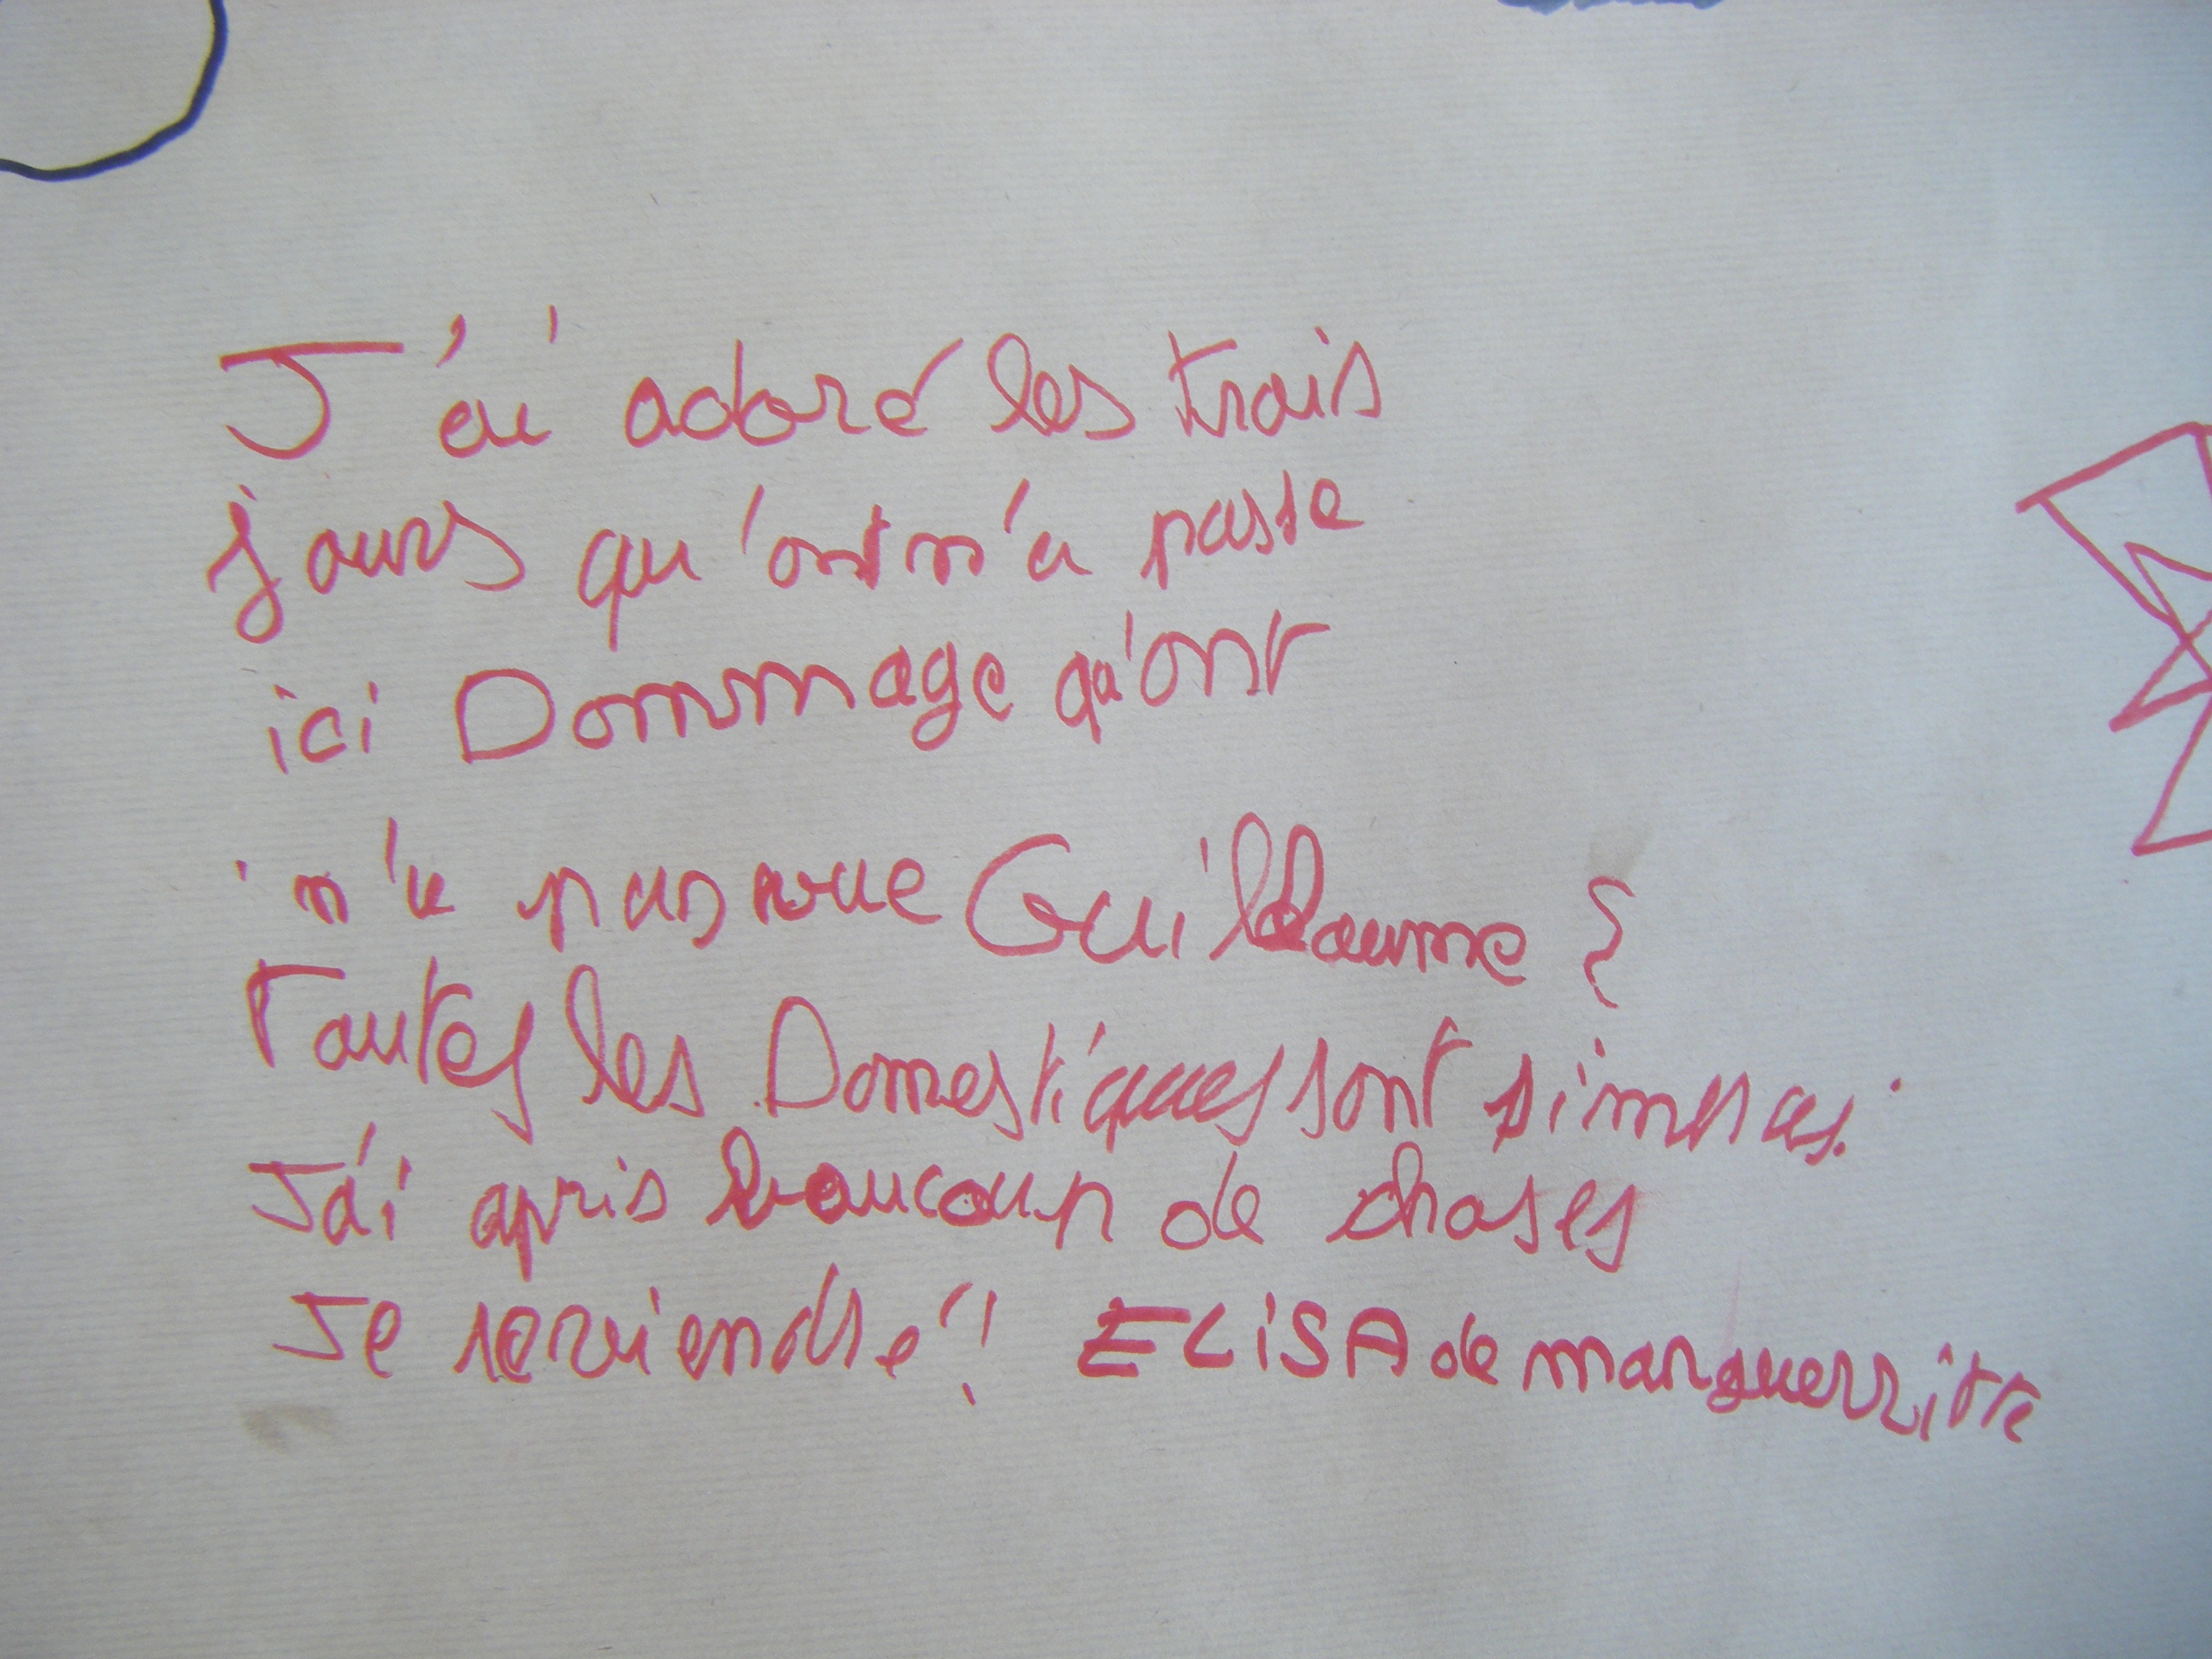 J'ai adoré les trois
jours qu'ont n'a passe
ici Dommage qu'ont
n'a pas vue Guillaume
Toutes les Domestiques sont simpas.
J'ai apris beaucoup de choses
Je reviendré! ELiSA de marguerritte